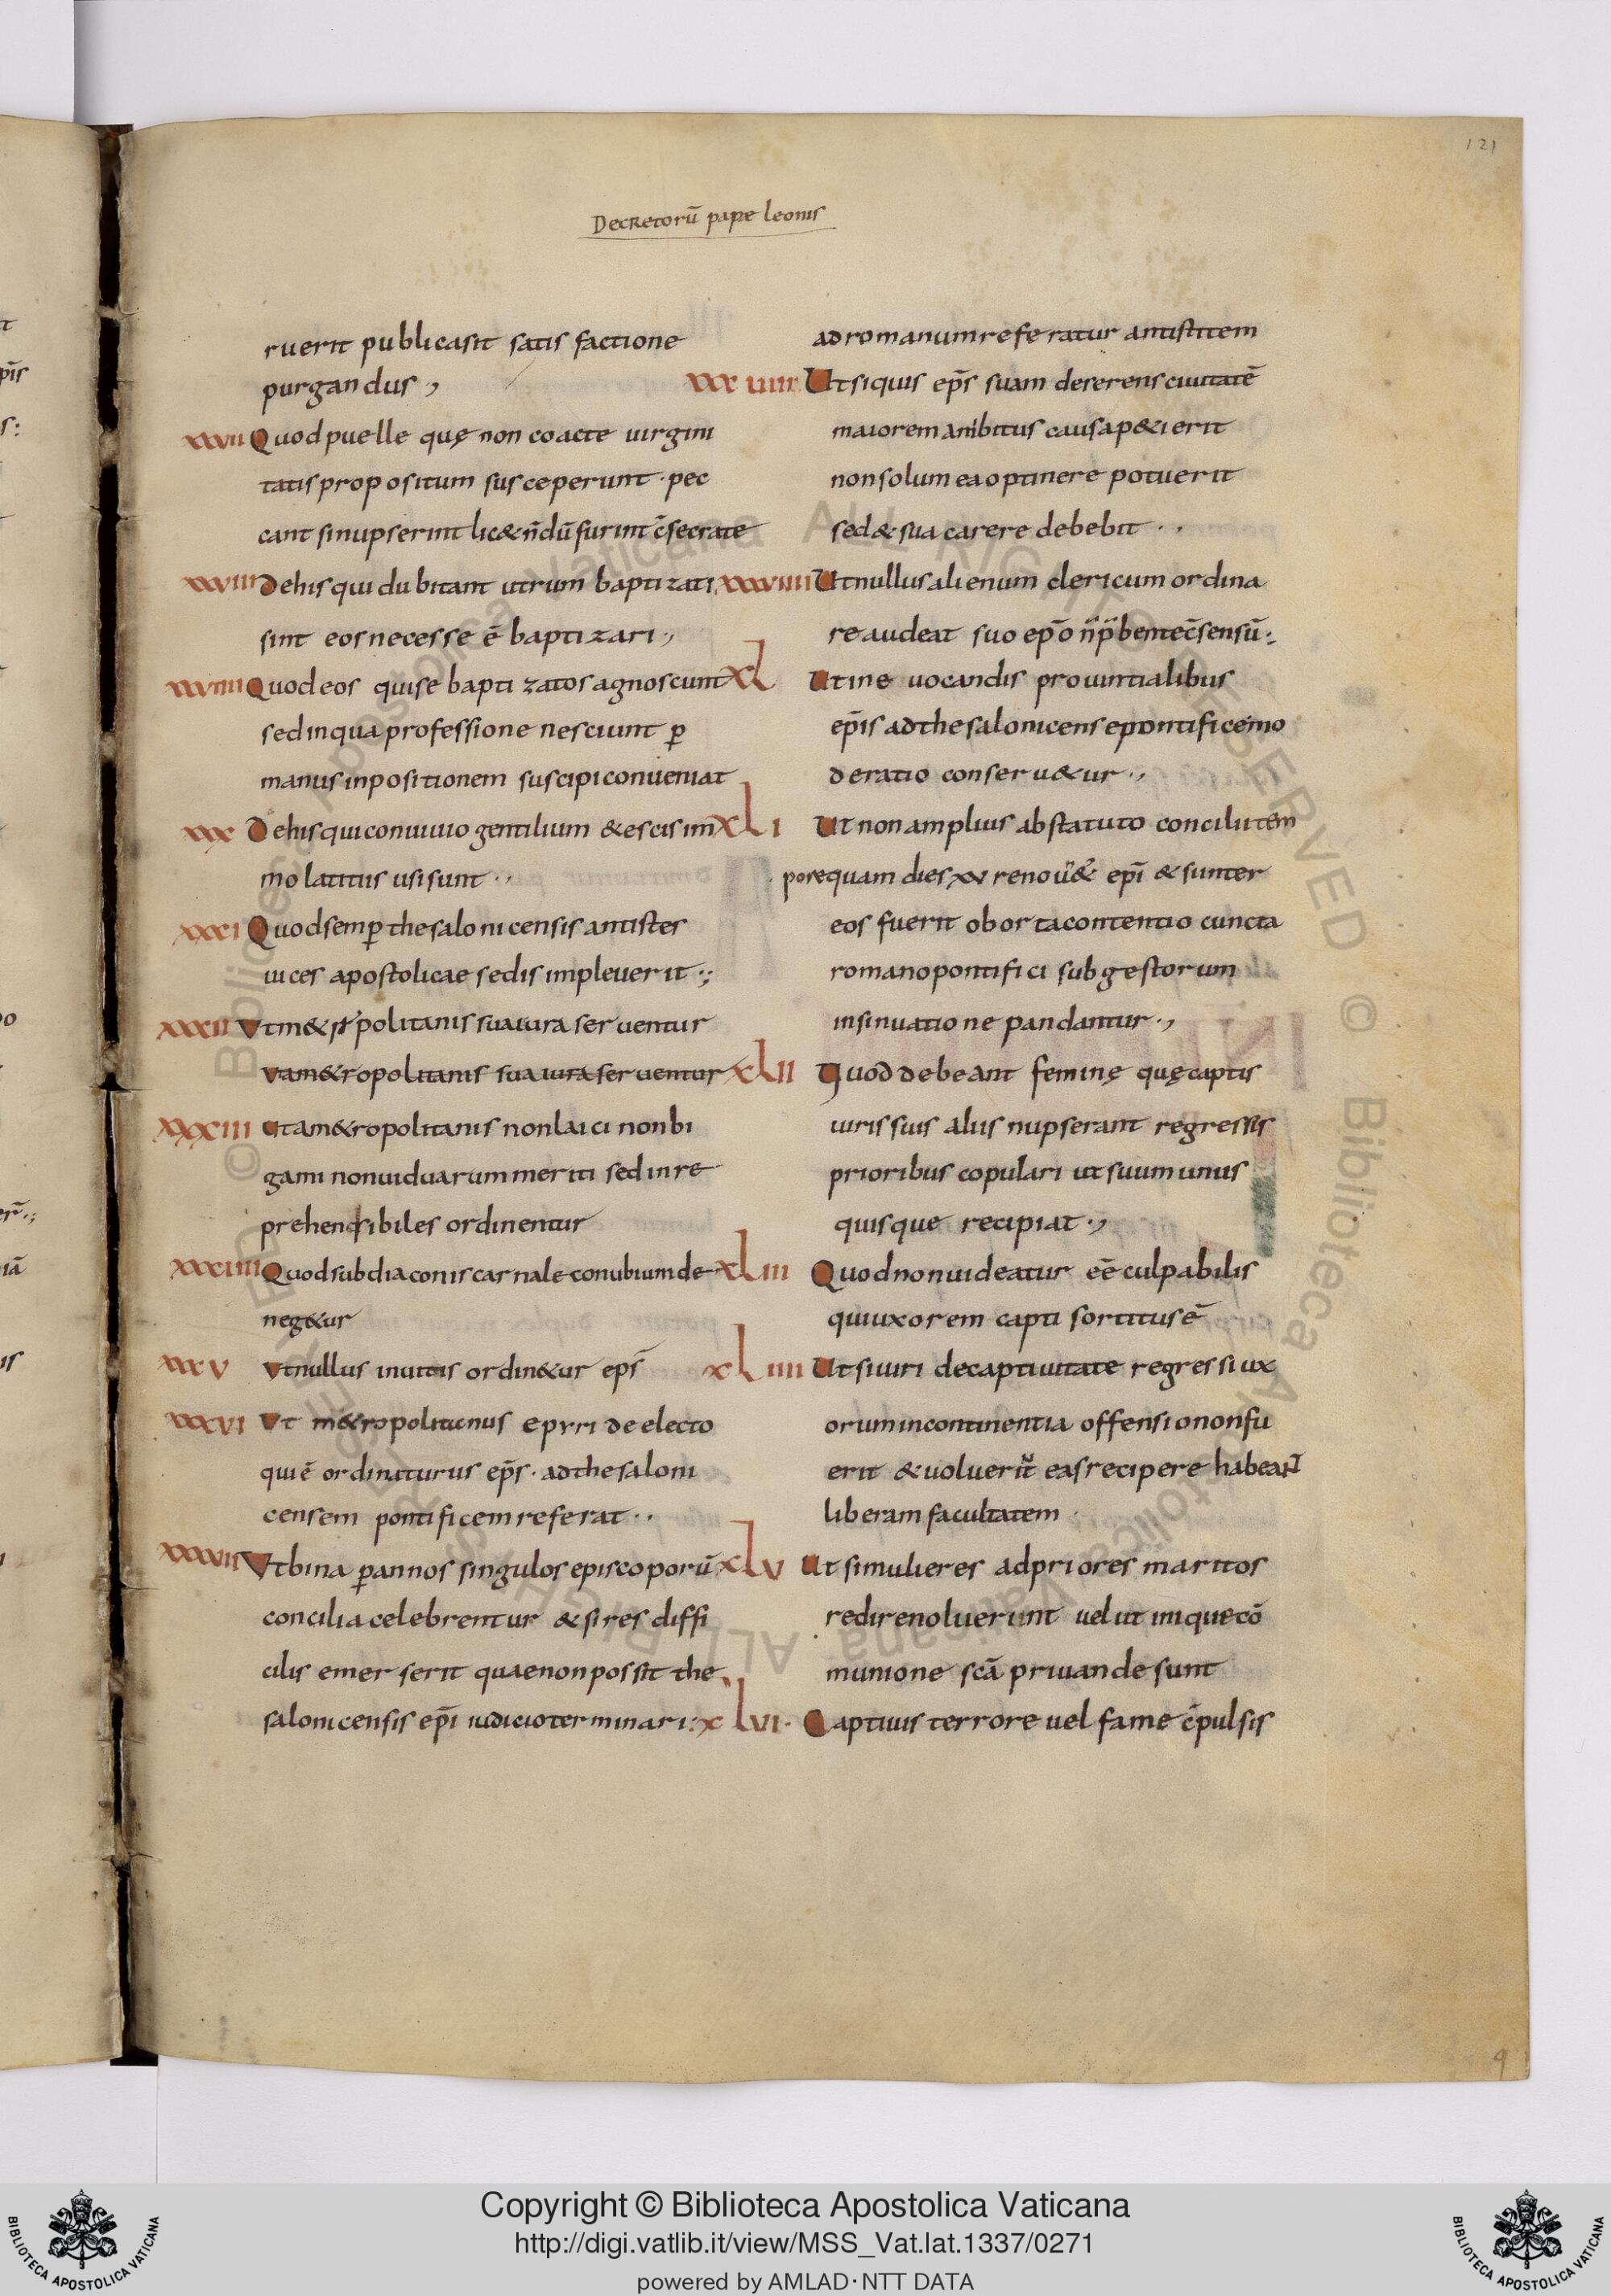 121
Decretorū pape leonis
ruerit publica sit satis factione
purgandus,
xxvii Quod puelle quę non coacte uirgini
tatis propositum susceperunt · pec
cant si nupserint lic& n̄dū fuerint c̄secrate
xxviii De his qui dubitant utrum baptizati
sint eos necesse ē baptizari·,
xxviiii Quod eos qui se baptizatos agnoscunt
sed in qua professione nesciunt ꝑ
manus inpositionem suscipi conueniat
xxx De his qui conuiuio gentilium & escis im
molatitus usi sunt··
xxxi Quod semꝑ thesalonicensis antistes
uices apostolicae sedis impleuerit :;
xxxii politanis sua iura seruentur
ut a m&ropolitanis sua iura seruentur
xxxiii Ut a m&ropolitanis non laici non bi
gami non uiduarum meriti sed inre
prehensibiles ordinentur
xxxiiii Quod subdiaconis carnale conubium de
neg&ur
xxxv Ut nullus inuitis ordin&ur ep̄s
xxxvi Ut m&ropolitanus epyri de electo
qui ē ordinaturus ep̄s · ad thesaloni
censem pontificem referat··
xxxvii Ut bina ꝑ annos singulos episcoporū
concilia celebrentur & si res diffi
cilis emerserit quae non possit the
salonicensis ep̄i iudicio terminari:
ad romanum referatur antistitem
xxxviii Ut siquis ep̄s suam deserens ciuitatē
maiorem ambitus causa p&ierit
non solum ea optinere potuerit
sed & sua carere debebit··,
xxxviiii Ut nullus alienum clericum ordina
re audeat suo ep̄o n̄ p̄bente c̄sensū:
xl Ut in euocandis prouintialibus
ep̄is ad thesalonicense pontifice mo
deratio conseru&ur·,
xli Ut non amplius ab statuto concilii tem
pore quam dies xv ep̄i & si inter
eos fuerit oborta contentio cuncta
romano pontifici sub gestorum
insinuatione pandantur·,
xlii Quod debeant feminę quę captis
uiris suis aliis nupserant regressis
prioribus copulari ut suum unus
quisque recipiat·,
xliii Quod non uideatur eē culpabilis
qui uxorem capti sortitus ē
xliiii Ut si uiri de captiuitate regressi ux
orum incontinentia offensi non fu
erit & uoluerit eas recipere habeant
liberam facultatem
xlv Ut si mulieres ad priores maritos
redire noluerunt uelut inique cō
munione scā priuande sunt
xlvi· Captiuis terrore uel fame c̄pulsis
9
Copyright © Biblioteca Apostolica Vaticana
http://digi.vatlib.it/view/MSS_Vat.lat.1337/0271
powered by AMLAD·NTT DATA
BIBLIOTECA APOSTOLICA VATICANA
BIBLIOTECA APOSTOLICA VATICANA